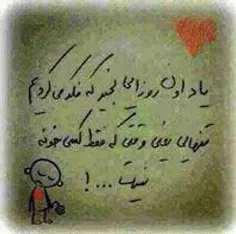 یاد اون روزایی بخیر که فکر می کردیم
تنهایی یعنی وقتی که فقط کسی خونه
نیست...!